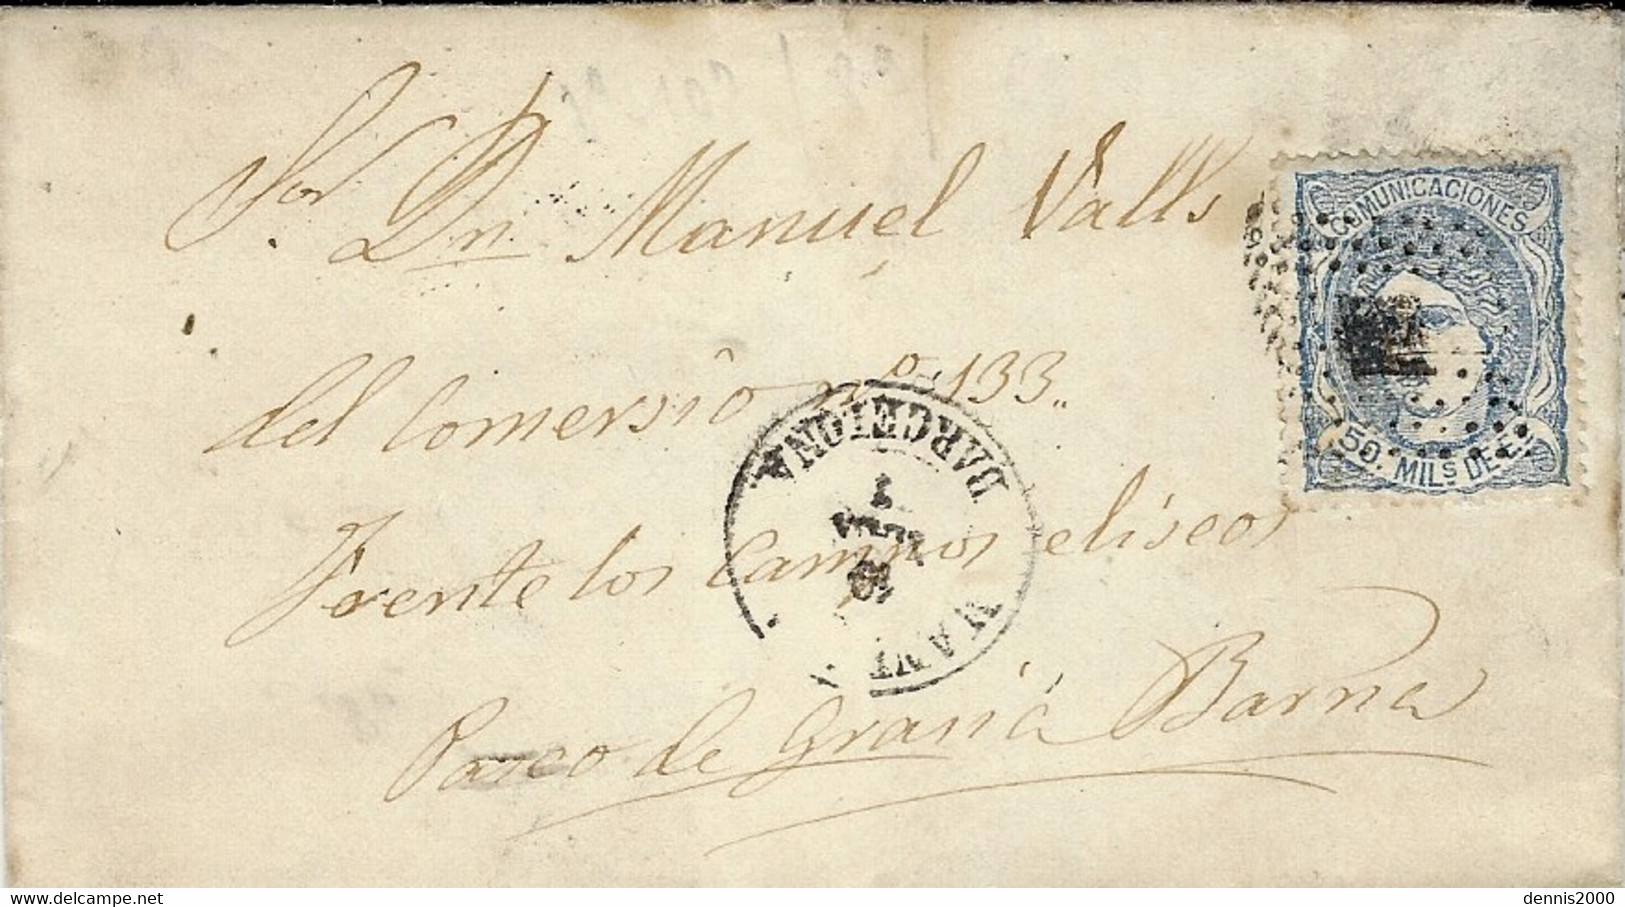 Sor Dn Manuel Valls
del Comersio nº 133
Frente los Campos eliseos
Paseo de Grasia Barna
COMUNICACIONES
50. MILS DE E.
BARCELONA
dennis2000